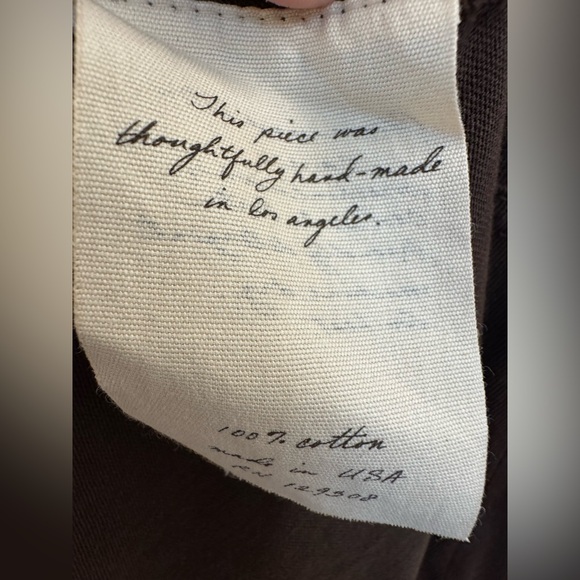 This piece was
thoughtfully hand-made
in los angeles.
100% cotton
made in USA
RN 129508